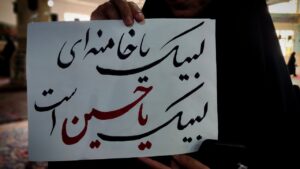 لبیک یا خامنه ای
لبیک یا حسین است